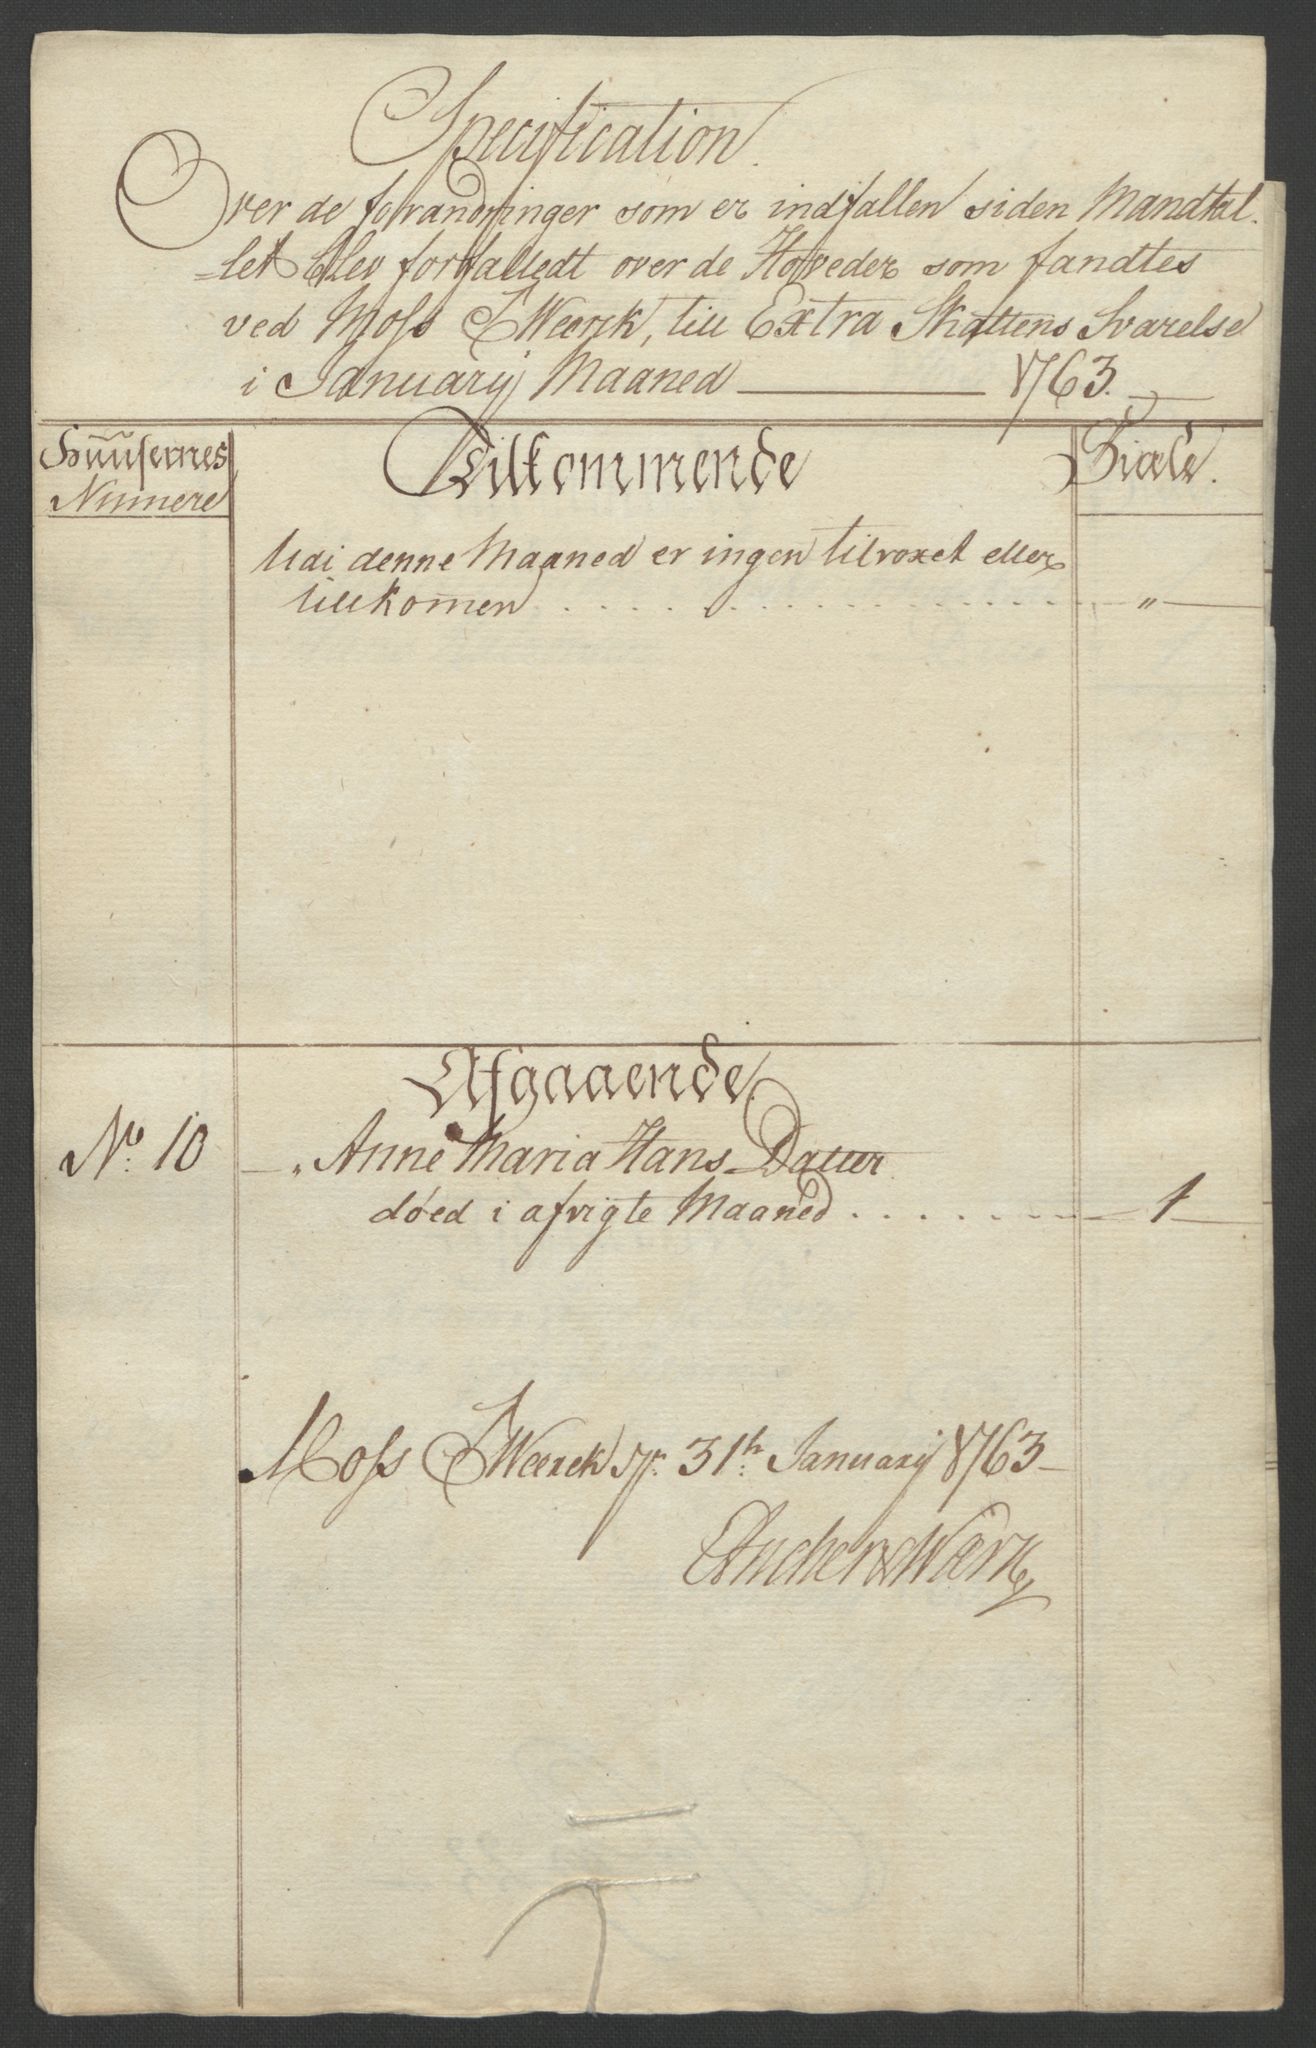 Specification.
Over de forrandringer som er indfallen siden Mandtal-
let blev forfattedt over de Hoveder som fandtes
ved Moss J Weerck, till Extra Skattens Svarelse
i January Maaned 1763.
Huusernes Tilkommende Siæle.
Numere
Udi denne Maaned er ingen tilvoxet eller
tillkom̄en . . . . . . . . . . . "
Afgaaende.
No. 10 Anne Maria Hans Datter
döed i afvigte Maaned . . . . . . . 1
Moss J Weerck 31th January 1763